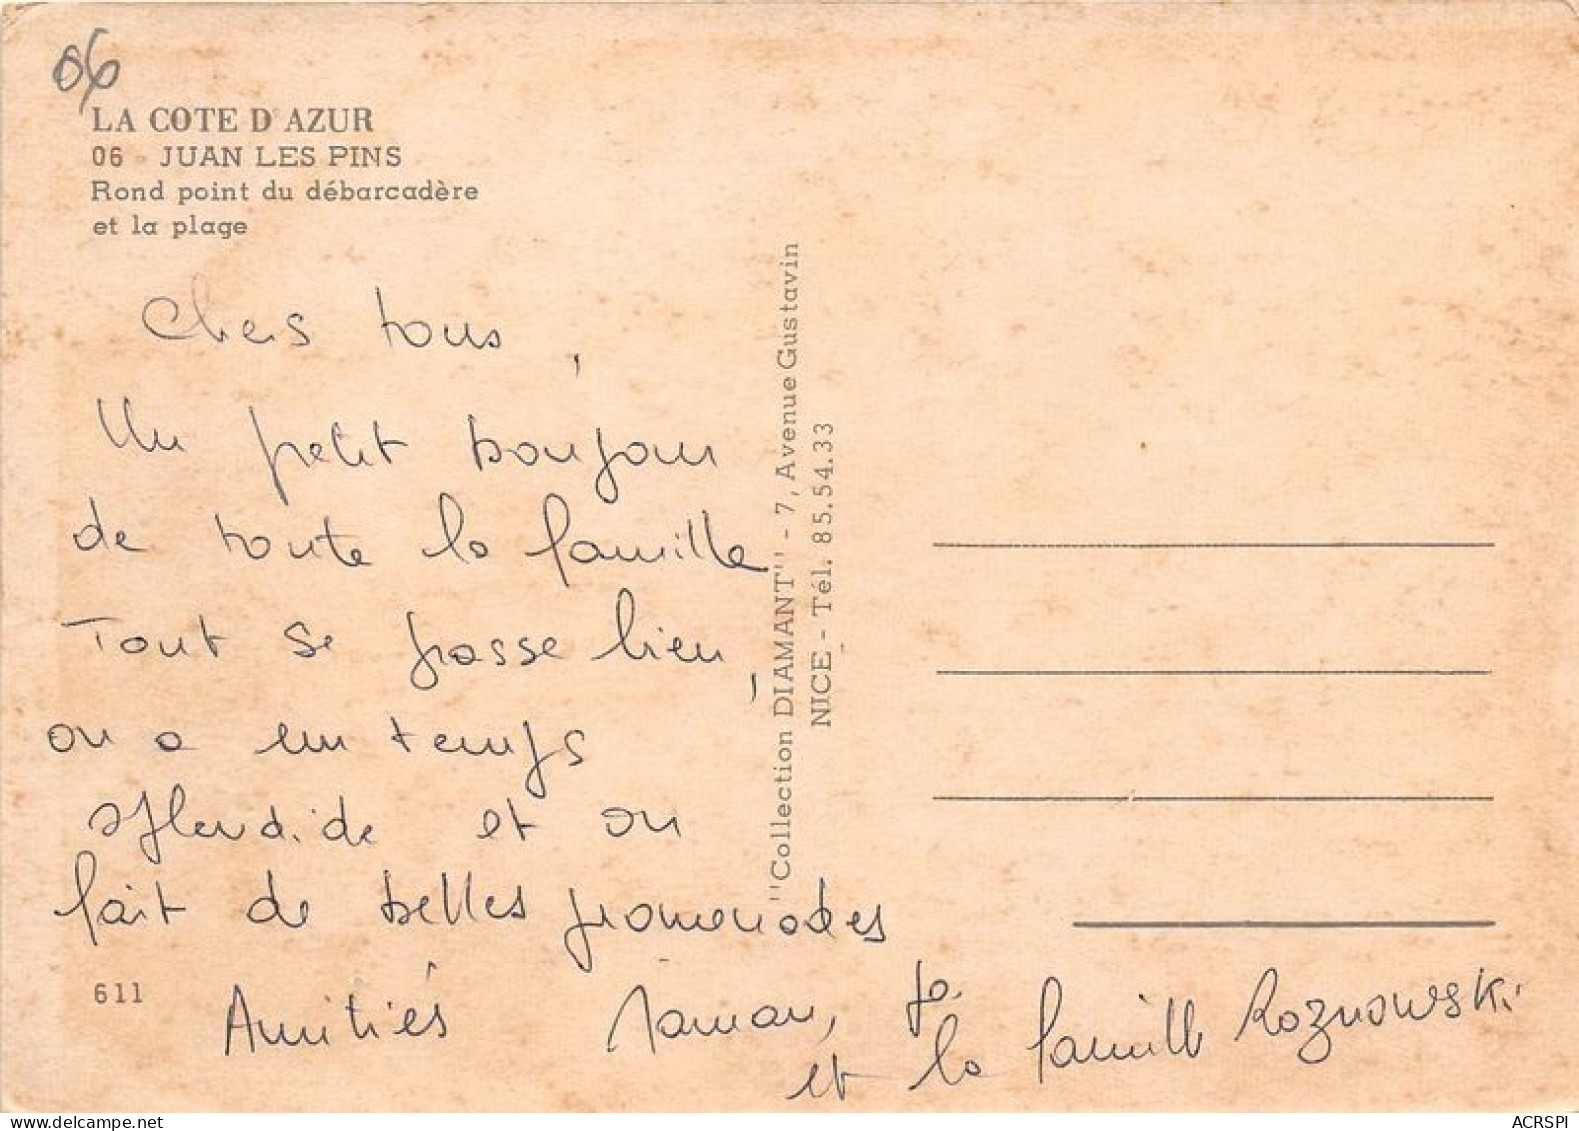 06
LA COTE D'AZUR
06 - JUAN LES PINS
Rond point du débarcadère
et la plage
Chers tous,
Un petit bonjour
de toute la famille
Tout se passe bien,
on a un temps
splendide et on
fait de belles promenades
Amitiés Maman, Jo.
et la famille Roznowski
611
"Collection DIAMANT" - 7, Avenue Gustavin
NICE - Tél. 85.54.33
ACRSPI